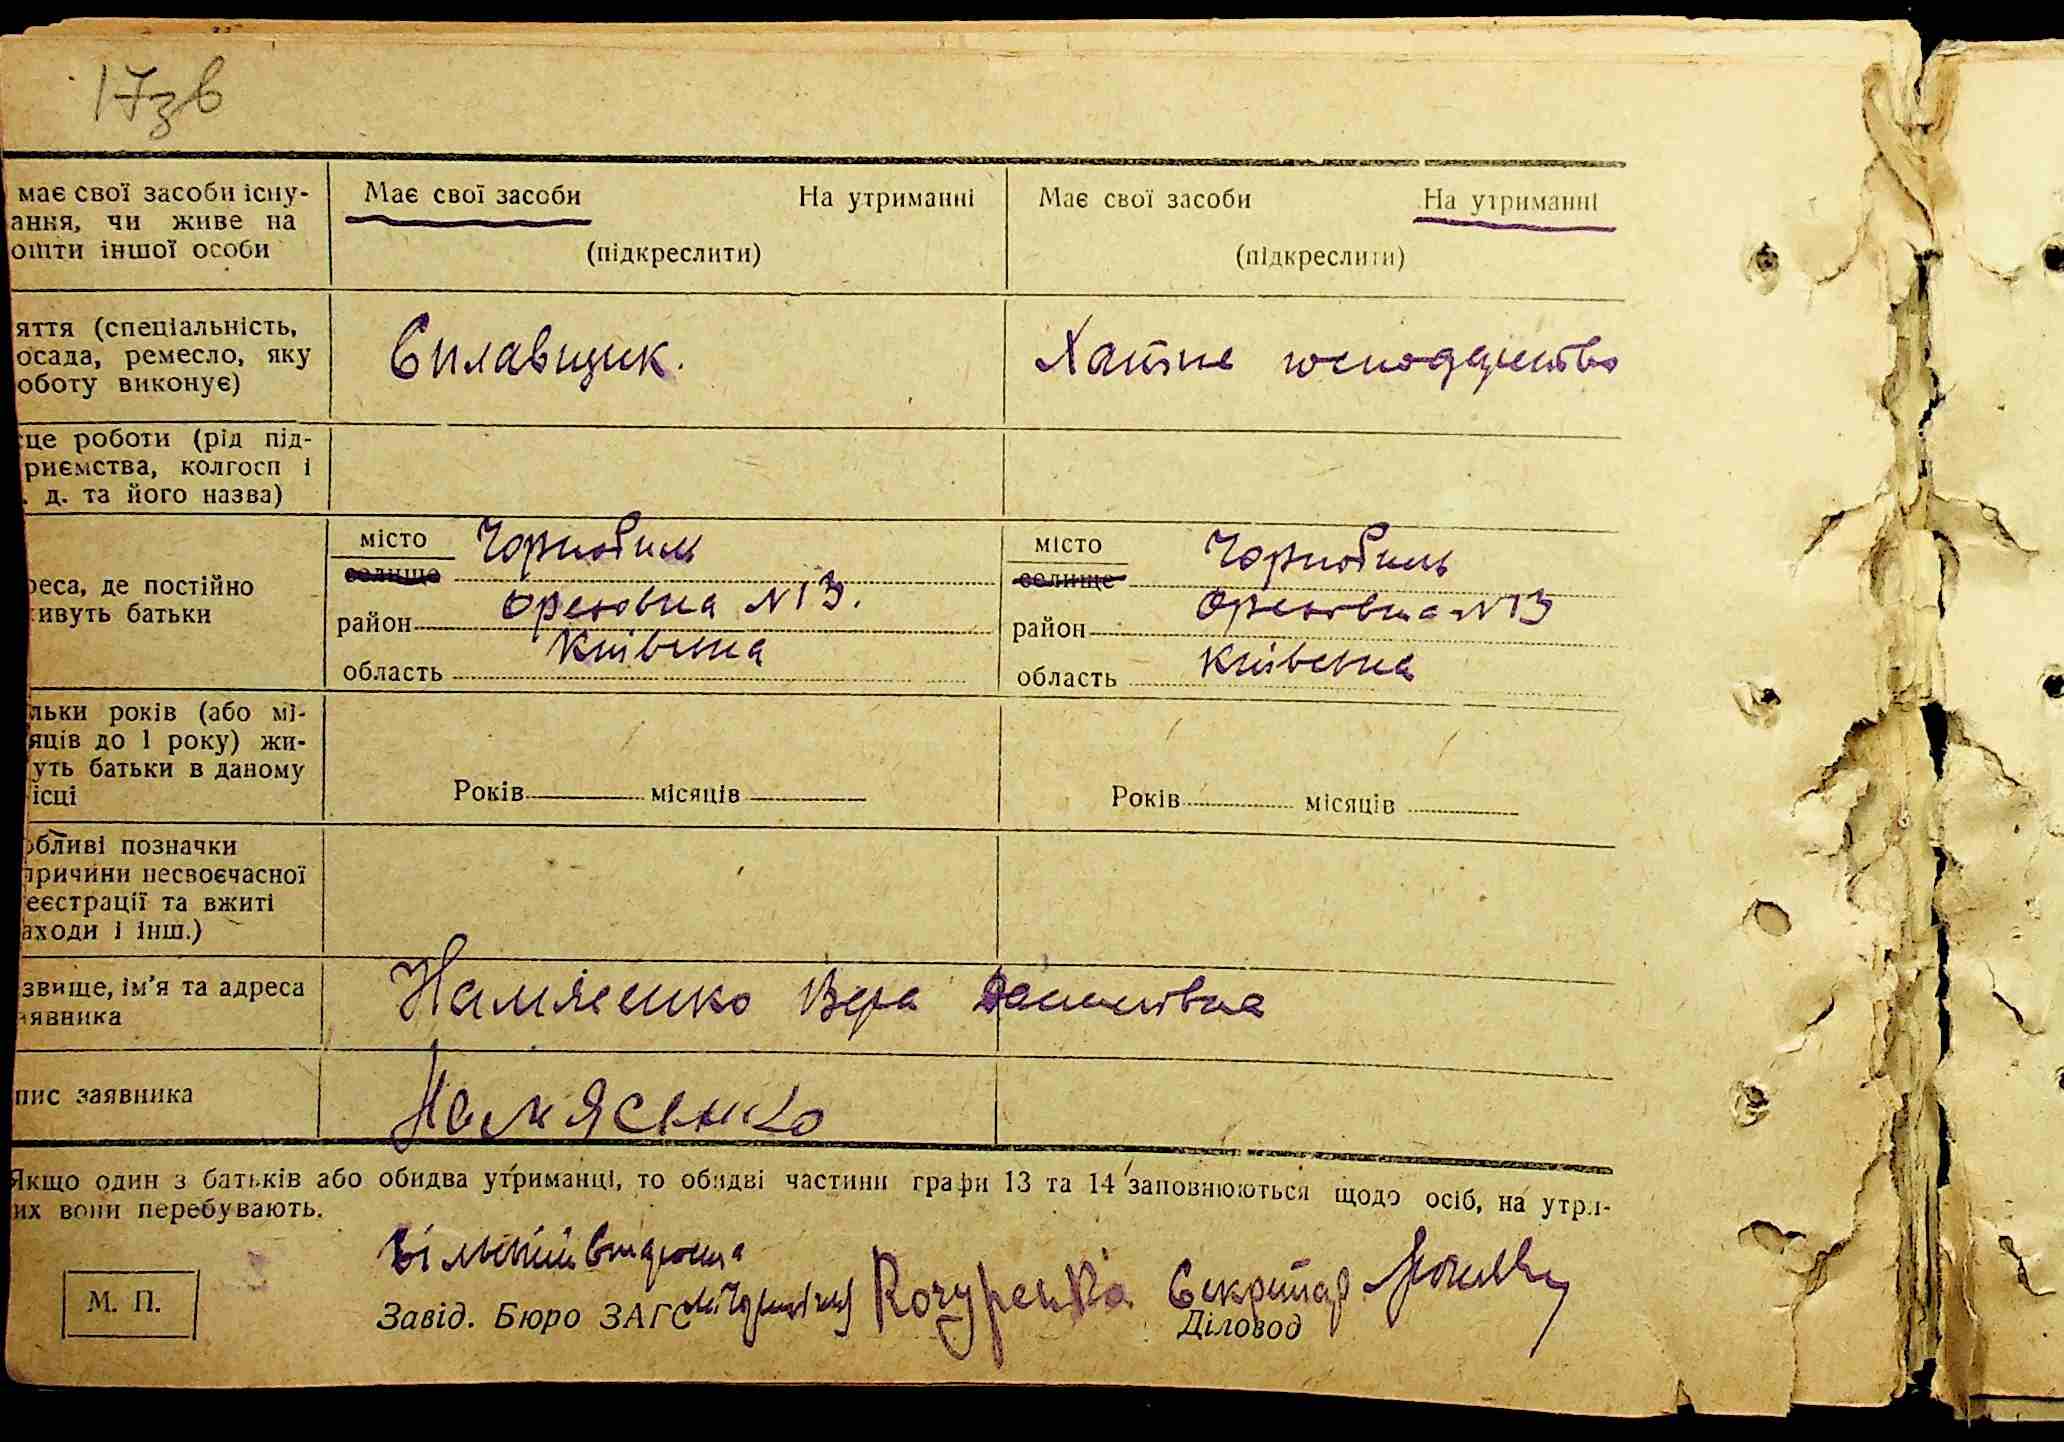 17зв
має свої засоби існу-
ання, чи живе на
ошти іншої особи
Має свої засоби На утриманні
(підкреслити)
Має свої засоби На утриманні
(підкреслити)
яття (спеціальність,
осада, ремесло, яку
оботу виконує)
Сплавщик.
Хатнє господарство
це роботи (рід під-
риємства, колгосп і
. д. та його назва)
реса, де постійно
ивуть батьки
місто Чорнобиль
селище
район N 13.
область Київська
місто Чорнобиль
селище
район N 13
область Київська
льки років (або мі-
яців до 1 року) жи-
уть батьки в даному
ісці
Років місяців
Років місяців
обливі позначки
причини несвоєчасної
еєстрації та вжиті
аходи і інш.)
звище, ім'я та адреса
явника
Намясенко Вера Данилівна
пис заявника
Намясенко
Якщо один з батьків або обидва утриманці, то обидві частини графи 13 та 14 заповнюються щодо осіб, на утри-
их вони перебувають.
М. П.
Завід. Бюро ЗАГС Кочуренка Секретар
Діловод